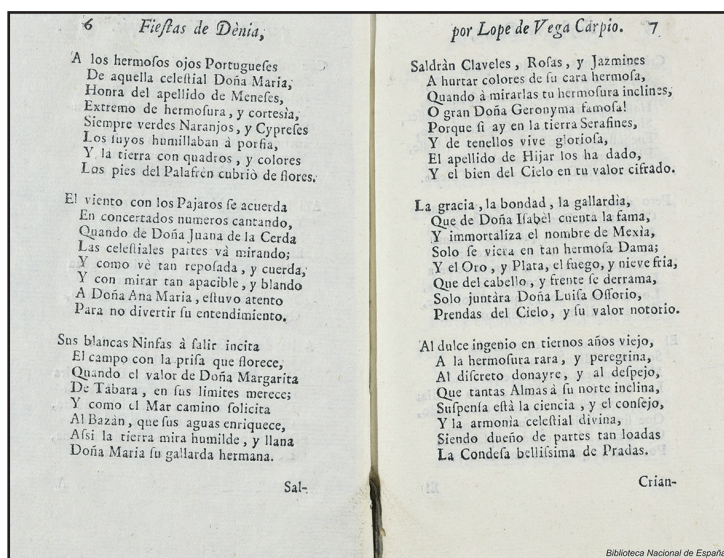 6 Fieſtas de Dènia,
A los hermoſos ojos Portugueſes
De aquella celeſtial Doña Maria,
Honra del apellido de Meneſes,
Extremo de hermoſura, y corteſìa,
Siempre verdes Naranjos, y Cypreſes
Los ſuyos humillaban à porfia,
Y la tierra con quadros, y colores
Los pies del Palafrèn cubriò de flores.
El viento con los Pajaros ſe acuerda
En concertados numeros cantando,
Quando de Doña Juana de la Cerda
Las celeſtiales partes và mirando;
Y como vè tan repoſada, y cuerda,
Y con mirar tan apacible, y blando
A Doña Ana Maria, eſtuvo atento
Para no divertir ſu entendimiento.
Sus blancas Ninfas à ſalir incita
El campo con la priſa que florece,
Quando el valor de Doña Margarita
De Tàbara, en ſus limites merece;
Y como el Mar camino ſolicita
Al Bazàn, que ſus aguas enriquece,
Aſsi la tierra mira humilde, y llana
Doña Maria ſu gallarda hermana.
Sal-
por Lope de Vega Carpio. 7
Saldràn Claveles, Roſas, y Jazmines
A hurtar colores de ſu cara hermoſa,
Quando à mirarlas tu hermoſura inclines,
O gran Doña Geronyma famoſa!
Porque ſi ay en la tierra Serafines,
Y de tenellos vive glorioſa,
El apellido de Hijar los ha dado,
Y el bien del Cielo en tu valor cifrado.
La gracia, la bondad, la gallardìa,
Que de Doña Iſabèl cuenta la fama,
Y immortaliza el nombre de Mexìa,
Solo ſe viera en tan hermoſa Dama;
Y el Oro, y Plata, el fuego, y nieve fria,
Que del cabello, y frente ſe derrama,
Solo juntàra Doña Luiſa Oſſorio,
Prendas del Cielo, y ſu valor notorio.
Al dulce ingenio en tiernos años viejo,
A la hermoſura rara, y peregrina,
Al diſcreto donayre, y al deſpejo,
Que tantas Almas à ſu norte inclina,
Suſpenſa eſtà la ciencia, y el conſejo,
Y la armonia celeſtial divina,
Siendo dueño de partes tan loadas
La Condeſa belliſsima de Pradas.
Crian-
Biblioteca Nacional de España